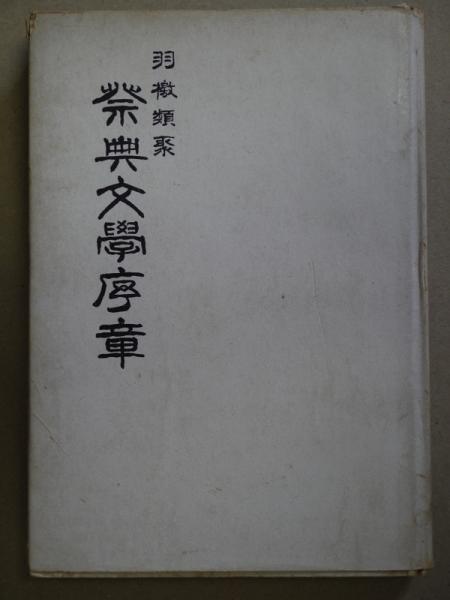 羽徵類聚
祭典文學序章